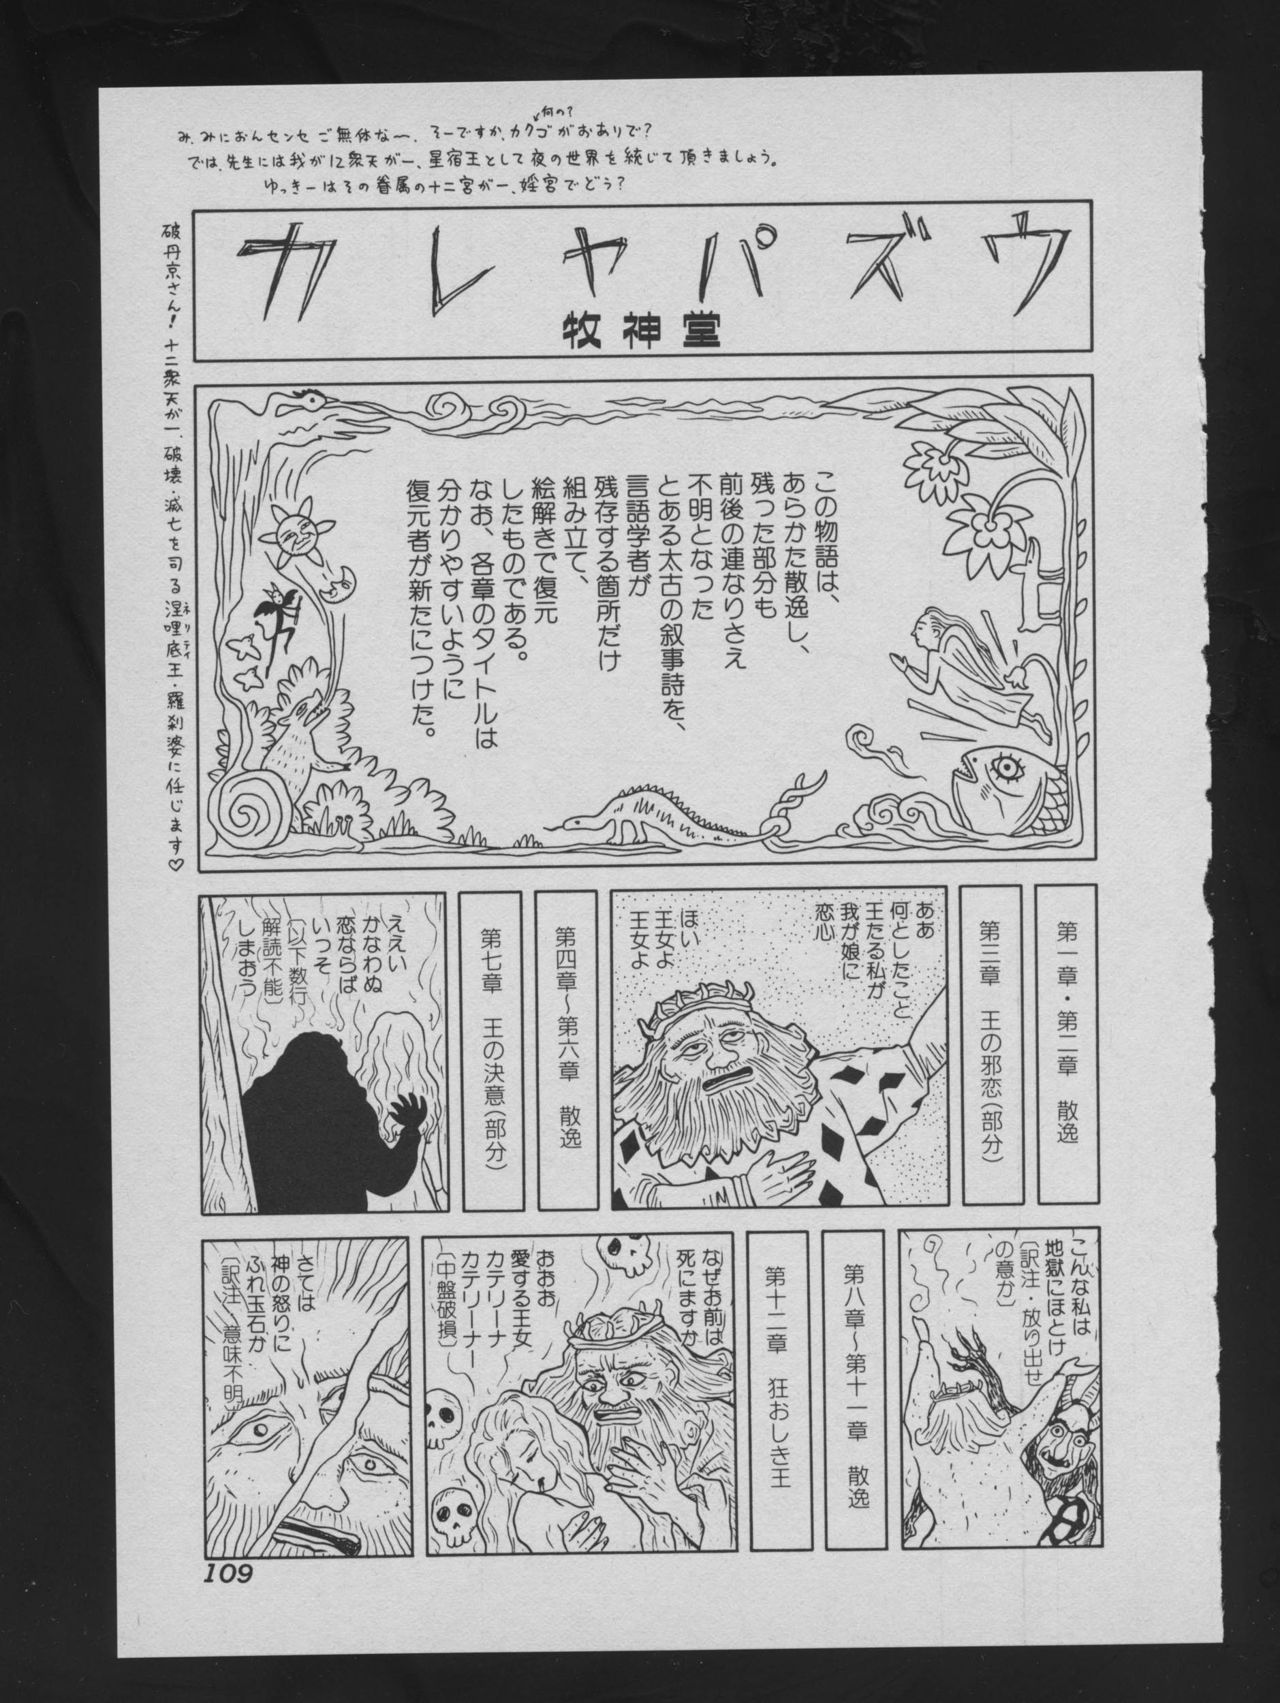 何の?
み、みにおんセンセご無体な〜、そーですか、カクゴがおありで?
では、先生には我が12衆天が一、星宿王として夜の世界を統じて頂きましょう。
ゆっきーはその眷属の十二宮が一、婬宮でどう?
破丹京さん!十二衆天が一、破壊・滅亡を司る涅哩底王・羅刹婆に任じます♡
ネリティ
カレヤパズウ
牧神堂
この物語は、
あらかた散逸し、
残った部分も
前後の連なりさえ
不明となった
とある太古の叙事詩を、
言語学者が
残存する箇所だけ
組み立て、
絵解きで復元
したものである。
なお、各章のタイトルは
分かりやすいように
復元者が新たにつけた。
第一章・第二章 散逸
第三章 王の邪恋(部分)
ああ
何としたこと
王たる私が
我が娘に
恋心
ほい
王女よ
王女よ
第四章〜第六章 散逸
第七章 王の決意(部分)
ええい
かなわぬ
恋ならば
いっそ
〔以下数行
解読不能〕
しまおう
こんな私は
地獄にほとけ
〔訳注・放り出せ
の意か〕
第八章〜第十一章 散逸
第十二章 狂おしき王
なぜお前は
死にますか
おおお
愛する王女
カテリーナ
カテリーナー
〔中盤破損〕
さては
神の怒りに
ふれ玉石か
〔訳注・意味不明〕
109